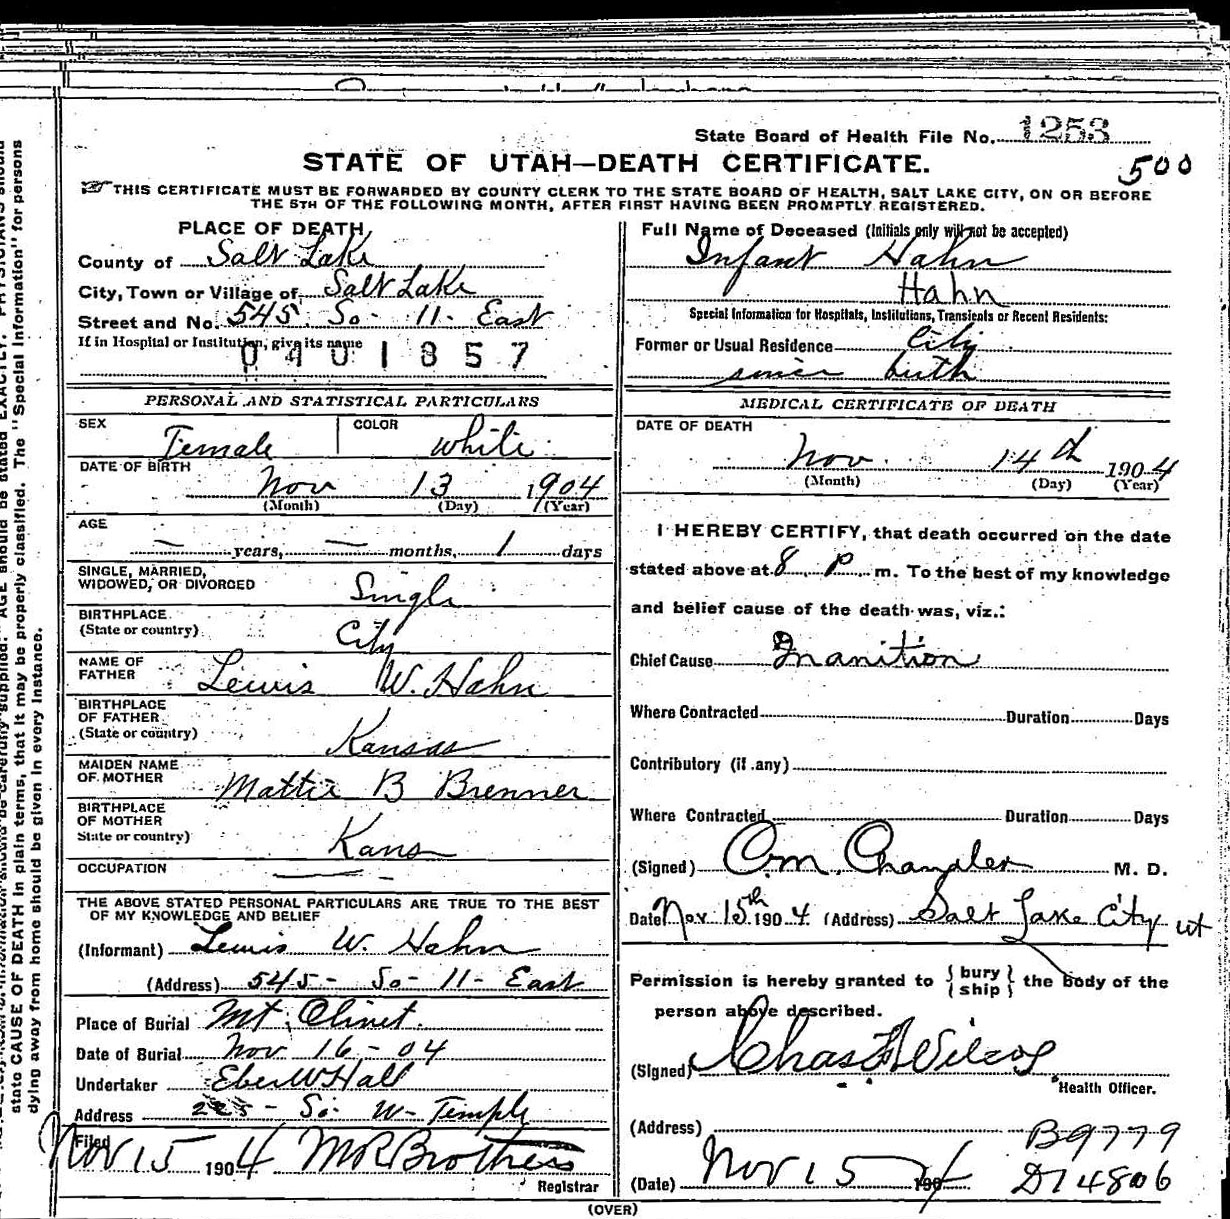 State Board of Health File No. 1253
500
STATE OF UTAH—DEATH CERTIFICATE.
THIS CERTIFICATE MUST BE FORWARDED BY COUNTY CLERK TO THE STATE BOARD OF HEALTH, SALT LAKE CITY, ON OR BEFORE
THE 5TH OF THE FOLLOWING MONTH, AFTER FIRST HAVING BEEN PROMPTLY REGISTERED.
PLACE OF DEATH
County of Salt Lake
City, Town or Village of Salt Lake
Street and No. 545 So- 11- East
If in Hospital or Institution, give its name
0401857
PERSONAL AND STATISTICAL PARTICULARS
SEX Female COLOR White
DATE OF BIRTH
Nov 13 1904
(Month) (Day) (Year)
AGE
— years, — months, 1 days
SINGLE, MARRIED,
WIDOWED, OR DIVORCED Single
BIRTHPLACE
(State or country) City
NAME OF
FATHER Lewis W. Hahn
BIRTHPLACE
OF FATHER
(State or country) Kansas
MAIDEN NAME
OF MOTHER Mattie B Brenner
BIRTHPLACE
OF MOTHER
State or country) Kans
OCCUPATION
THE ABOVE STATED PERSONAL PARTICULARS ARE TRUE TO THE BEST
OF MY KNOWLEDGE AND BELIEF
(Informant) Lewis W. Hahn
(Address) 545- So- 11- East
Place of Burial Mt. Olivet.
Date of Burial Nov 16-04
Undertaker Eber W Hall
Address 225- So- W- Temple
Filed Nov 15 1904 M R Brothers
Registrar
Full Name of Deceased (Initials only will not be accepted)
Infant Hahn
Hahn
Special Information for Hospitals, Institutions, Transients or Recent Residents:
Former or Usual Residence City
since birth
MEDICAL CERTIFICATE OF DEATH
DATE OF DEATH
Nov. 14th 1904
(Month) (Day) (Year)
I HEREBY CERTIFY, that death occurred on the date
stated above at 8 P m. To the best of my knowledge
and belief cause of the death was, viz.:
Chief Cause Inanition
Where Contracted Duration Days
Contributory (if any)
Where Contracted Duration Days
(Signed) O.M. Chandler M. D.
Date Nov 15th 1904 (Address) Salt Lake City ut
Permission is hereby granted to {bury ship} the body of the
person above described.
(Signed) Chas F Wilcox
Health Officer.
(Address) B9779
(Date) Nov 15 1904 D14806
(OVER)
stato CAUSE OF DEATH in plain terms, that it may be properly classified. The "Special Information" for persons
dying away from home should be given in every instance.